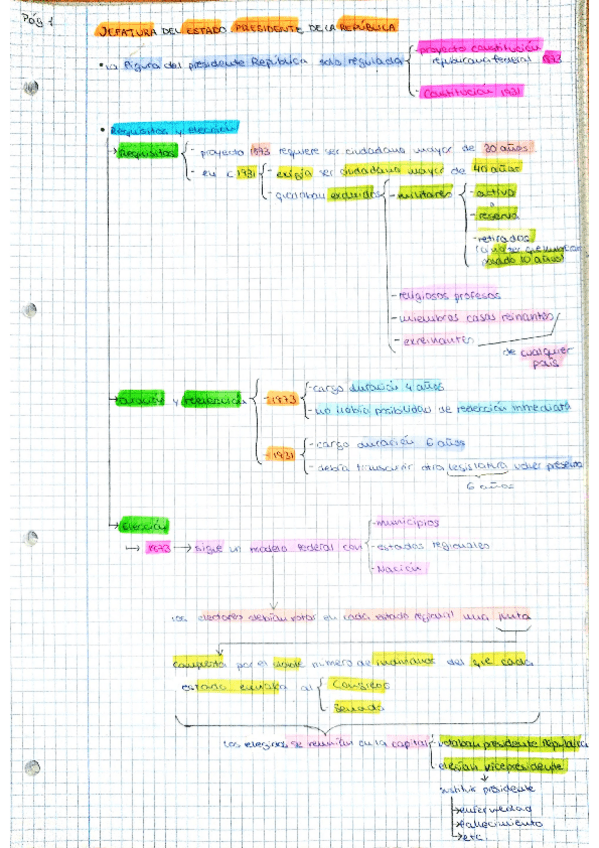 Pág 1
JEFATURA DEL ESTADO. PRESIDENTE DE LA REPÚBLICA
• La figura del presidente República solo regulada
- proyecto constitución
republicana federal 1873
- Constitución 1931
• Requisitos y elección
→ Requisitos
- proyecto 1873 requiere ser ciudadano mayor de 30 años
- en C 1931
- exigía ser ciudadano mayor de 40 años
- quedaban excluidos
- militares
- activo
o
- reserva
- retirados
(a no ser que hubieran
pasado 10 años)
- religiosos profesos
- miembros casas reinantes
- exreinantes
de cualquier
país
→ Duración y reelección
- 1973
- cargo duración 4 años
- no había posibilidad de reelección inmediata
- 1931
- cargo duración 6 años
- debía transcurrir otra legislatura volver
6 años
→ Elección
→ 1873 → sigue un modelo federal con
- municipios
- estados regionales
- Nación
Los electores debían votar en cada estado regional una junta
compuesta por el doble número de individuos del que cada
estado enviaba al
Congreso
Senado
Los elegidos se reunían en la capital
- votaban presidente República
- elegían vicepresidente
sustituir presidente
→ enfermedad
→ fallecimiento
→ etc.